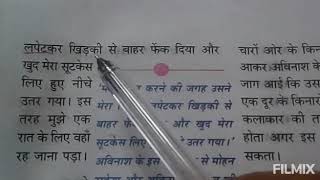 लपेटकर खिड़की से बाहर फेंक दिया और
खुद मेरा सूटकेस
लिए हुए नीचे
उतर गया। इस
तरह मुझे एक
रात के लिए वहाँ
रह जाना पड़ा।
करने की जगह उसने
लपेटकर खिड़की से
बाहर और खुद मेरा
सूटकेस उतर गया।'
अविनाश के इस से मोहन
चारों ओर के किन
आकर अविनाश के
जाग आई कि उस
एक दूर के किनारे
कलाकार की त
होता अगर इस
सकता।
FILMIX